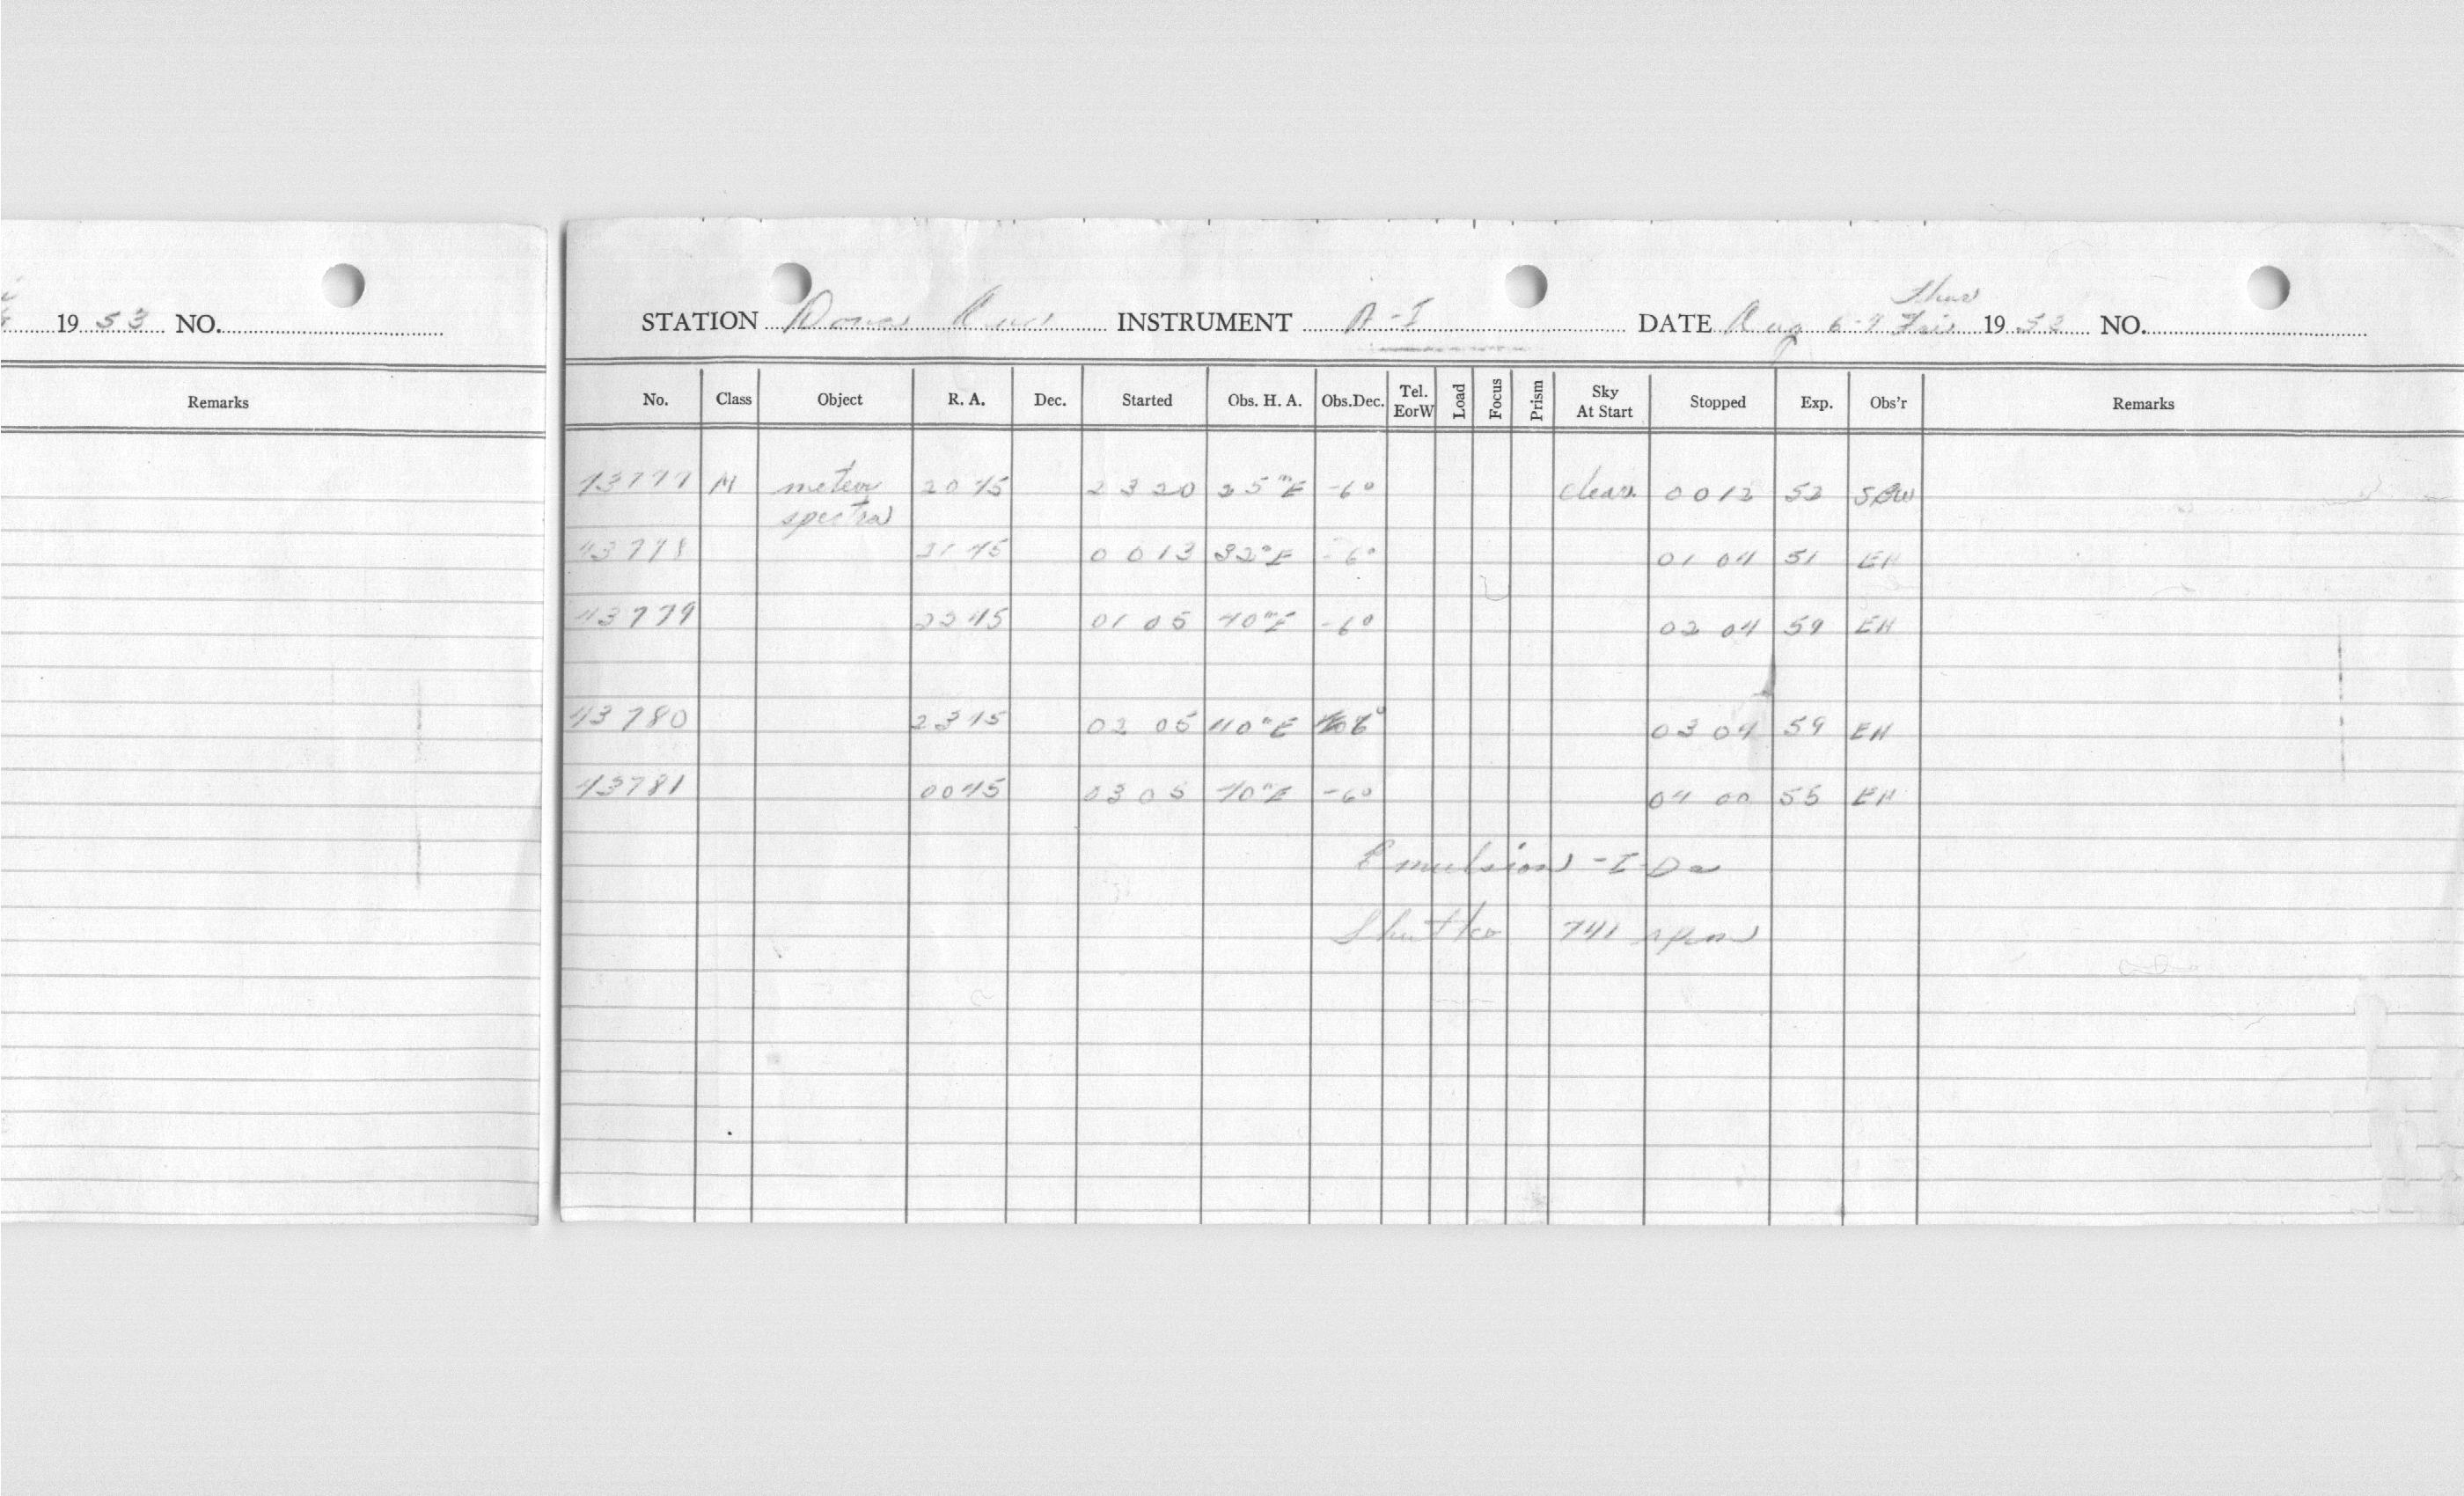 1953 NO.
Remarks
STATION Dona Ana INSTRUMENT A-I DATE Aug 6-7 Thur Fri 1953 NO.
No. Class Object R. A. Dec. Started Obs. H. A. Obs.Dec. Tel. EorW Load Focus Prism Sky At Start Stopped Exp. Obs'r Remarks
43777 M meteor spectra 2045 2320 25mE -6° clear 0012 52 SBW
43778 2145 0013 32mE -6° 01 04 51 EH
43779 2245 01 05 40mE -6° 02 04 59 EH
43780 2345 02 05 40mE 6° 03 04 59 EH
43781 0045 03 05 40mE -6° 04 00 55 EH
Emulsion - I-Da
Shutter 741 rpm